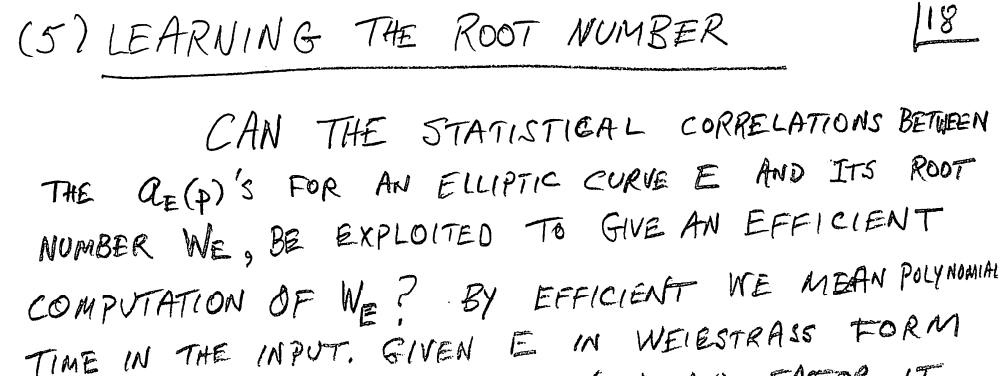 (5) LEARNING THE ROOT NUMBER 18
CAN THE STATISTICAL CORRELATIONS BETWEEN
THE a_E(p)'S FOR AN ELLIPTIC CURVE E AND ITS ROOT
NUMBER W_E, BE EXPLOITED TO GIVE AN EFFICIENT
COMPUTATION OF W_E? BY EFFICIENT WE MEAN POLYNOMIAL
TIME IN THE INPUT. GIVEN E IN WEIESTRASS FORM
FACTOR IT